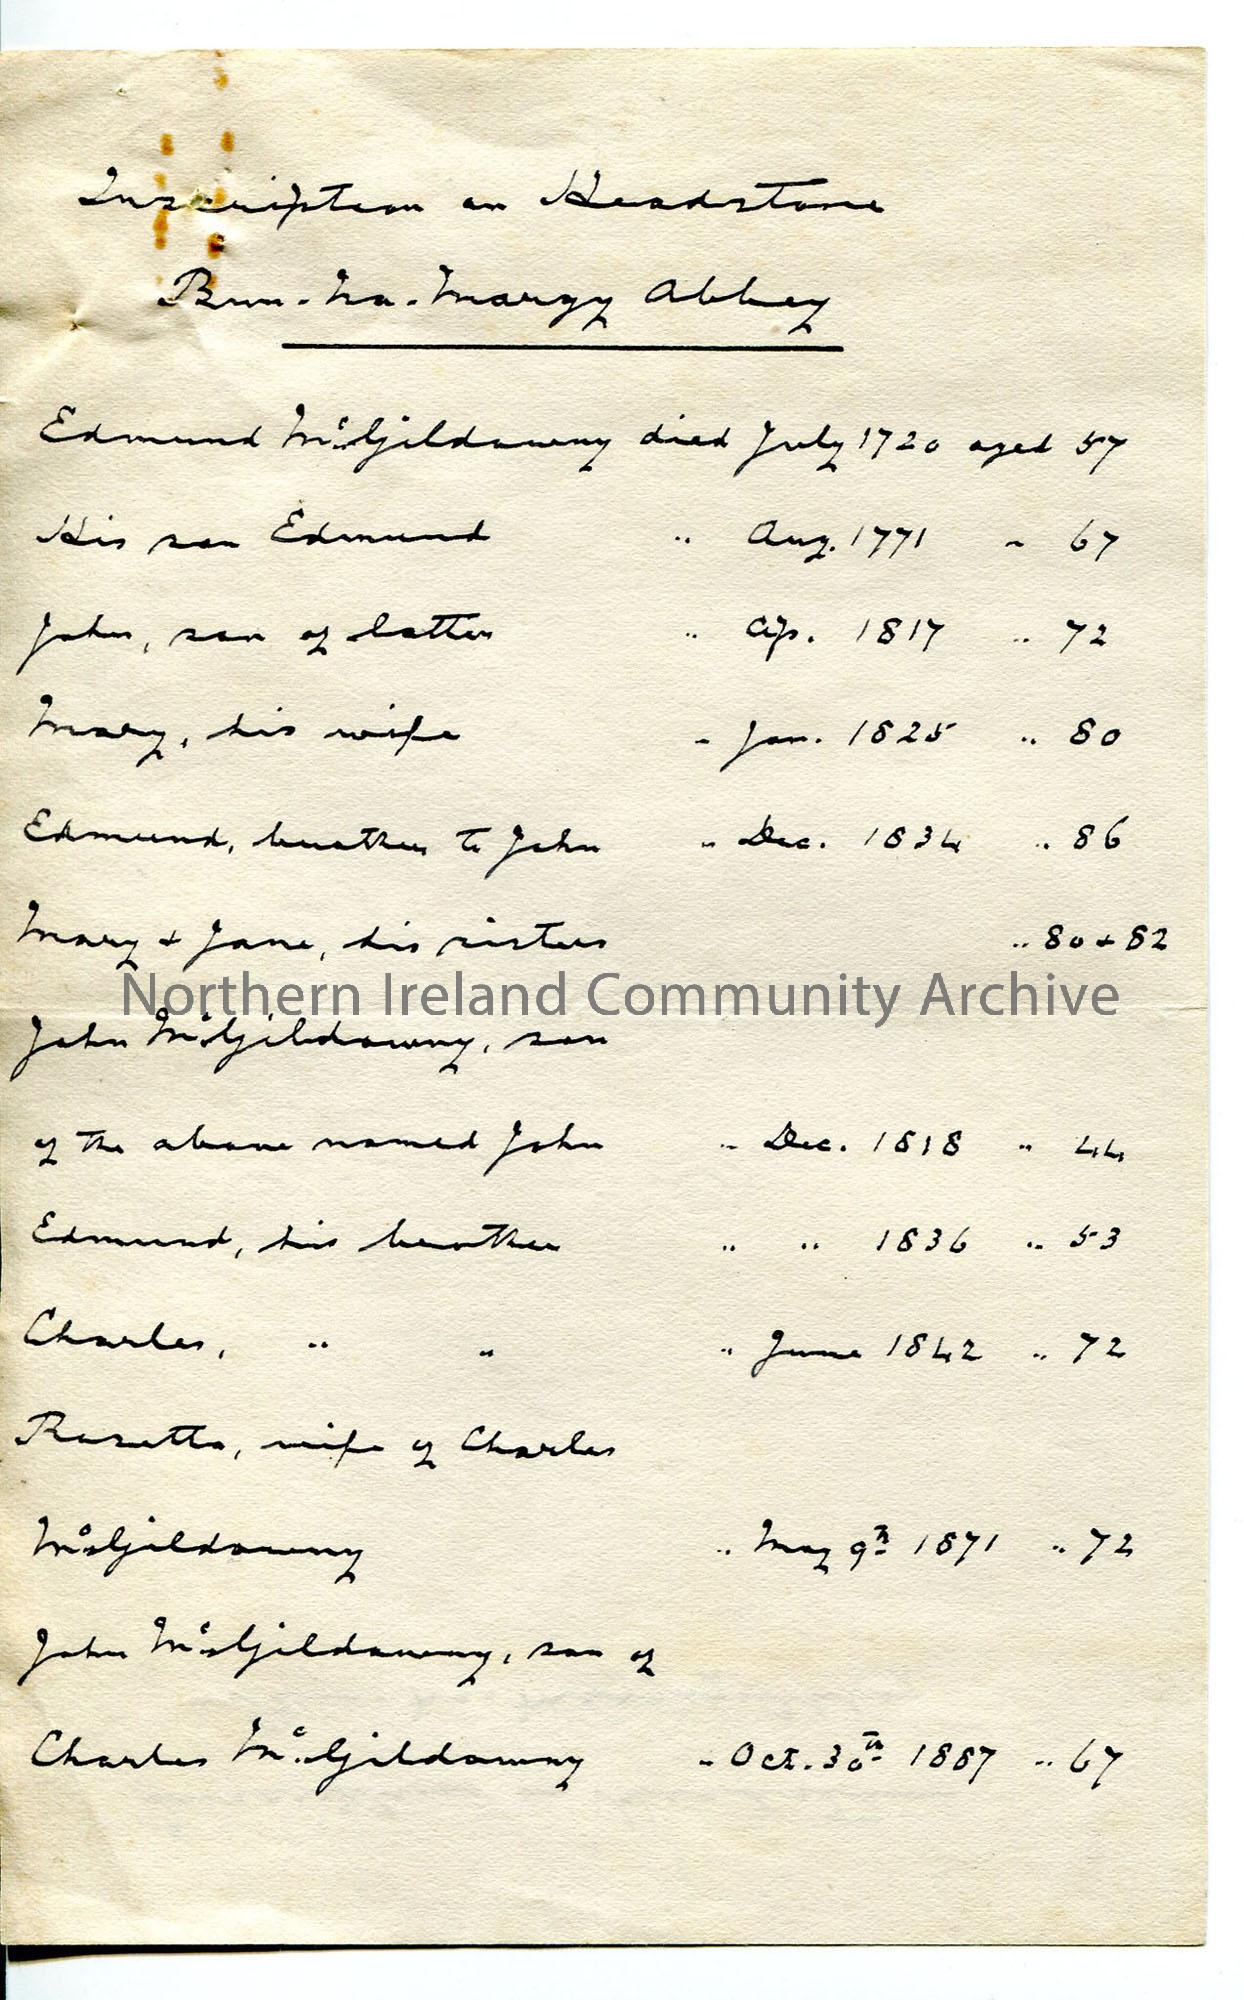 Inscription on Headstone
Bun-Na-Margy Abbey
Edmund McGildowny died July 1720 aged 57
His son Edmund " Aug. 1771 " 67
John, son of latter " Ap. 1817 " 72
Mary, his wife " Jan. 1825 " 80
Edmund, brother to John " Dec. 1834 " 86
Mary & Jane, his sisters " 80 & 82
Northern Ireland Community Archive
John McGildowny, son
of the above named John " Dec. 1818 " 44
Edmund, his brother " " 1836 " 53
Charles, " " " June 1842 " 72
Rosetta, wife of Charles
McGildowny " May 9th 1871 " 72
John McGildowny, son of
Charles McGildowny " Oct. 30th 1887 " 67